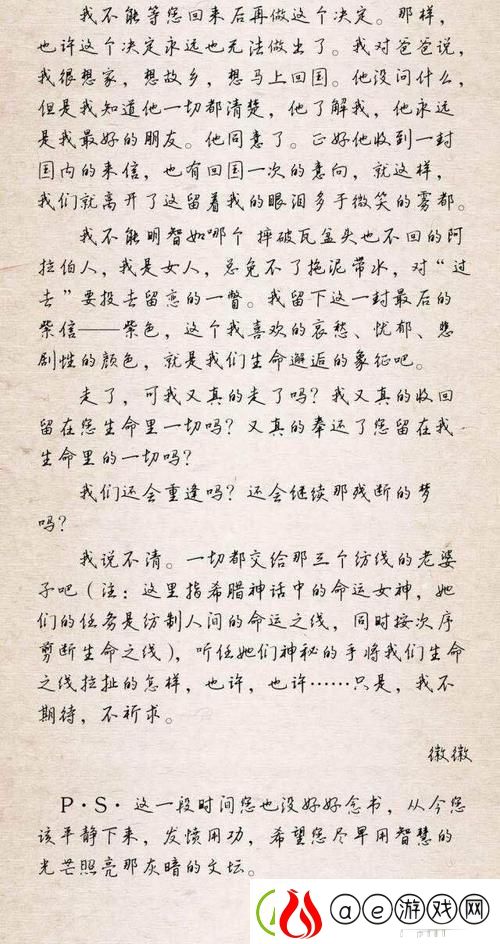 我不能等您回来后再做这个决定。那样，
也许这个决定永远也无法做出了。我对爸爸说，
我很想家，想故乡，想马上回国。他没问什么，
但是我知道他一切都清楚，他了解我，他永远
是我最好的朋友。他同意了。正好他收到一封
国内的来信，也有回国一次的意向，就这样，
我们就离开了这留着我的眼泪多于微笑的雾都。
我不能明智如哪个 摔破瓦盆头也不回的阿
拉伯人，我是女人，总免不了拖泥带水，对“过
去”要投去留恋的一瞥。我留下这一封最后的
紫信——紫色，这个我喜欢的哀愁、忧郁、悲
剧性的颜色，就是我们生命邂逅的象征吧。
走了，可我又真的走了吗？我又真的收回
留在您生命里一切吗？又真的奉还了您留在我
生命里的一切吗？
我们还会重逢吗？还会继续那残断的梦
吗？
我说不清。一切都交给那三个纺线的老婆
子吧（注：这里指希腊神话中的命运女神，她
们的任务是纺制人间的命运之线，同时按次序
剪断生命之线），听任她们神秘的手将我们生命
之线拉扯的怎样，也许，也许……只是，我不
期待，不祈求。
徽徽
P·S·这一段时间您也没好好念书，从今您
该平静下来，发愤用功，希望您尽早用智慧的
光芒照亮那灰暗的文坛。
ae游戏网